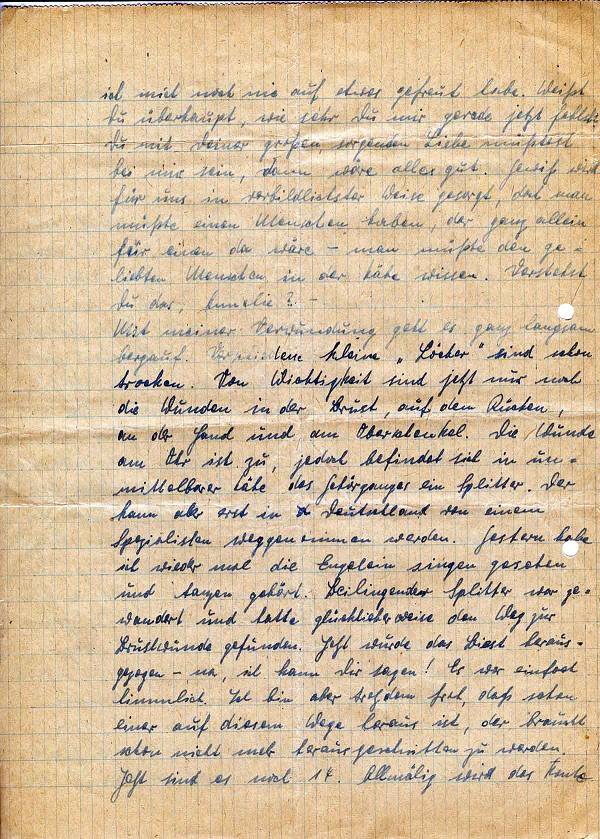 ich mich noch nie auf etwas gefreut habe. Weißt
Du überhaupt, wie sehr Du mir gerade jetzt fehlst.
Du mit Deiner großen, sorgenden Liebe müßtest
bei mir sein, dann wäre alles gut. Gewiß wird
für uns in vorbildlichster Weise gesorgt, doch man
müßte einen Menschen haben, der ganz allein
für einen da wäre – man müßte den ge-
liebten Menschen in der Nähe wissen. Verstehst
Du das, Annelie? –
Mit meiner Verwundung geht es ganz langsam
bergauf. kleine „Löcher" sind schon
trocken. Von Wichtigkeit sind jetzt nur noch
die Wunden in der Brust, auf dem Rücken,
an der Hand und am Oberschenkel. Die Wunde
am Ohr ist zu, jedoch befindet sich in un-
mittelbarer Nähe des Gehörganges ein Splitter. Der
kann aber erst in Deutschland von einem
Spezialisten weggenommen werden. Gestern habe
ich wieder mal die Engelein singen gesehen
und tanzen gehört. Splitter war ge-
wandert und hatte glücklicherweise den Weg zur
Brustwunde gefunden. Jetzt wurde das Biest heraus-
gezogen – na, ich kann Dir sagen! Es war einfach
himmlich. Ich bin aber trotzdem froh, daß schon
einer auf diesem Wege heraus ist, der braucht
schon nicht mehr herausgeschnitten zu werden.
Jetzt sind es noch 14. Allmälig wird das